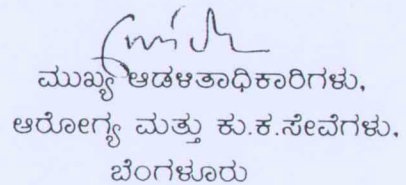 ಮುಖ್ಯ ಆಡಳಿತಾಧಿಕಾರಿಗಳು,
ಆರೋಗ್ಯ ಮತ್ತು ಕು.ಕ.ಸೇವೆಗಳು,
ಬೆಂಗಳೂರು